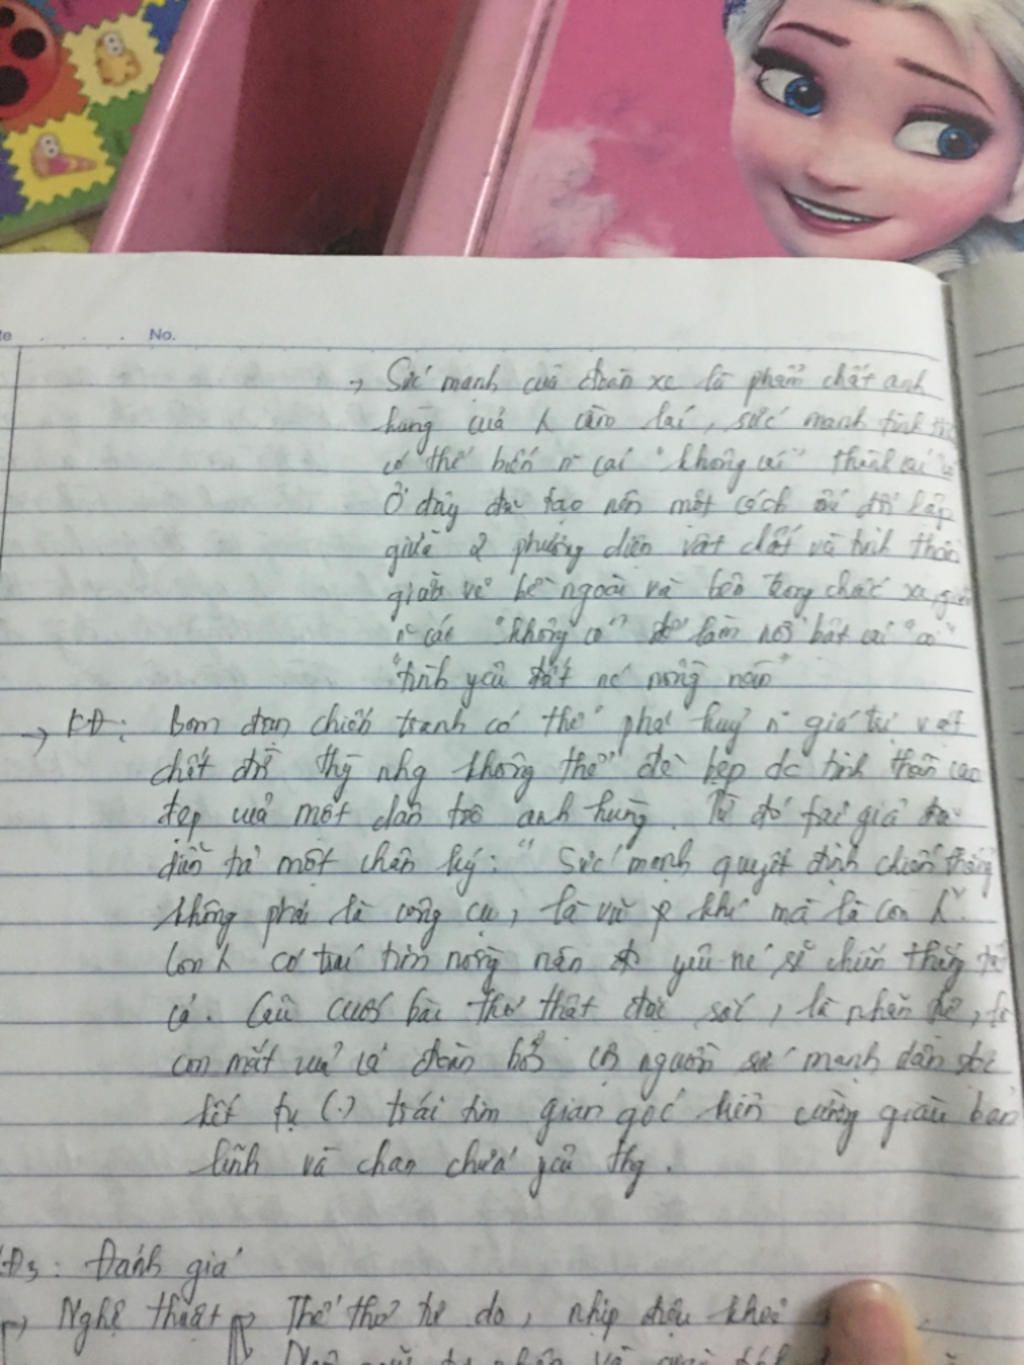 No.
→ Sức mạnh của đoàn xe là phẩm chất anh
hùng của λ cầm lái, sức mạnh tinh
có thể biến n` cái "không có" thành cái
Ở đây đã tạo nên một cách đối lập
giữa 2 phương diện vật chất và tinh thần
giữa vẻ bề ngoài và bên trong chiếc xe, giữa
n` cái "không có" để làm nổi bật cái "có"
"tình yêu đất nc nồng nàn"
→ KĐ: Bom đạn chiến tranh có thể phá huỷ n` giá trị vật
chất để thg nhg không thể đè bẹp đc tinh thần cao
đẹp của một dân tộc anh hùng. Từ đó tác giả đã
diễn tả một chân lý: "Sức mạnh quyết định chiến thắng
không phải là công cụ, là vũ khí mà là con λ".
Con λ có trái tim nồng nàn yêu nc sẽ chiến thắng tất
cả. Câu cuối bài thơ thật đặc sắc, là nhãn tự, là
con mắt của cả đoạn bởi cội nguồn sức mạnh dân tộc
kết tụ (.) trái tim gan góc kiên cường giàu bản
lĩnh và chan chứa yêu thg.
Đ3: Đánh giá
→ Nghệ thuật → Thể thơ tự do, nhịp điệu khoẻ